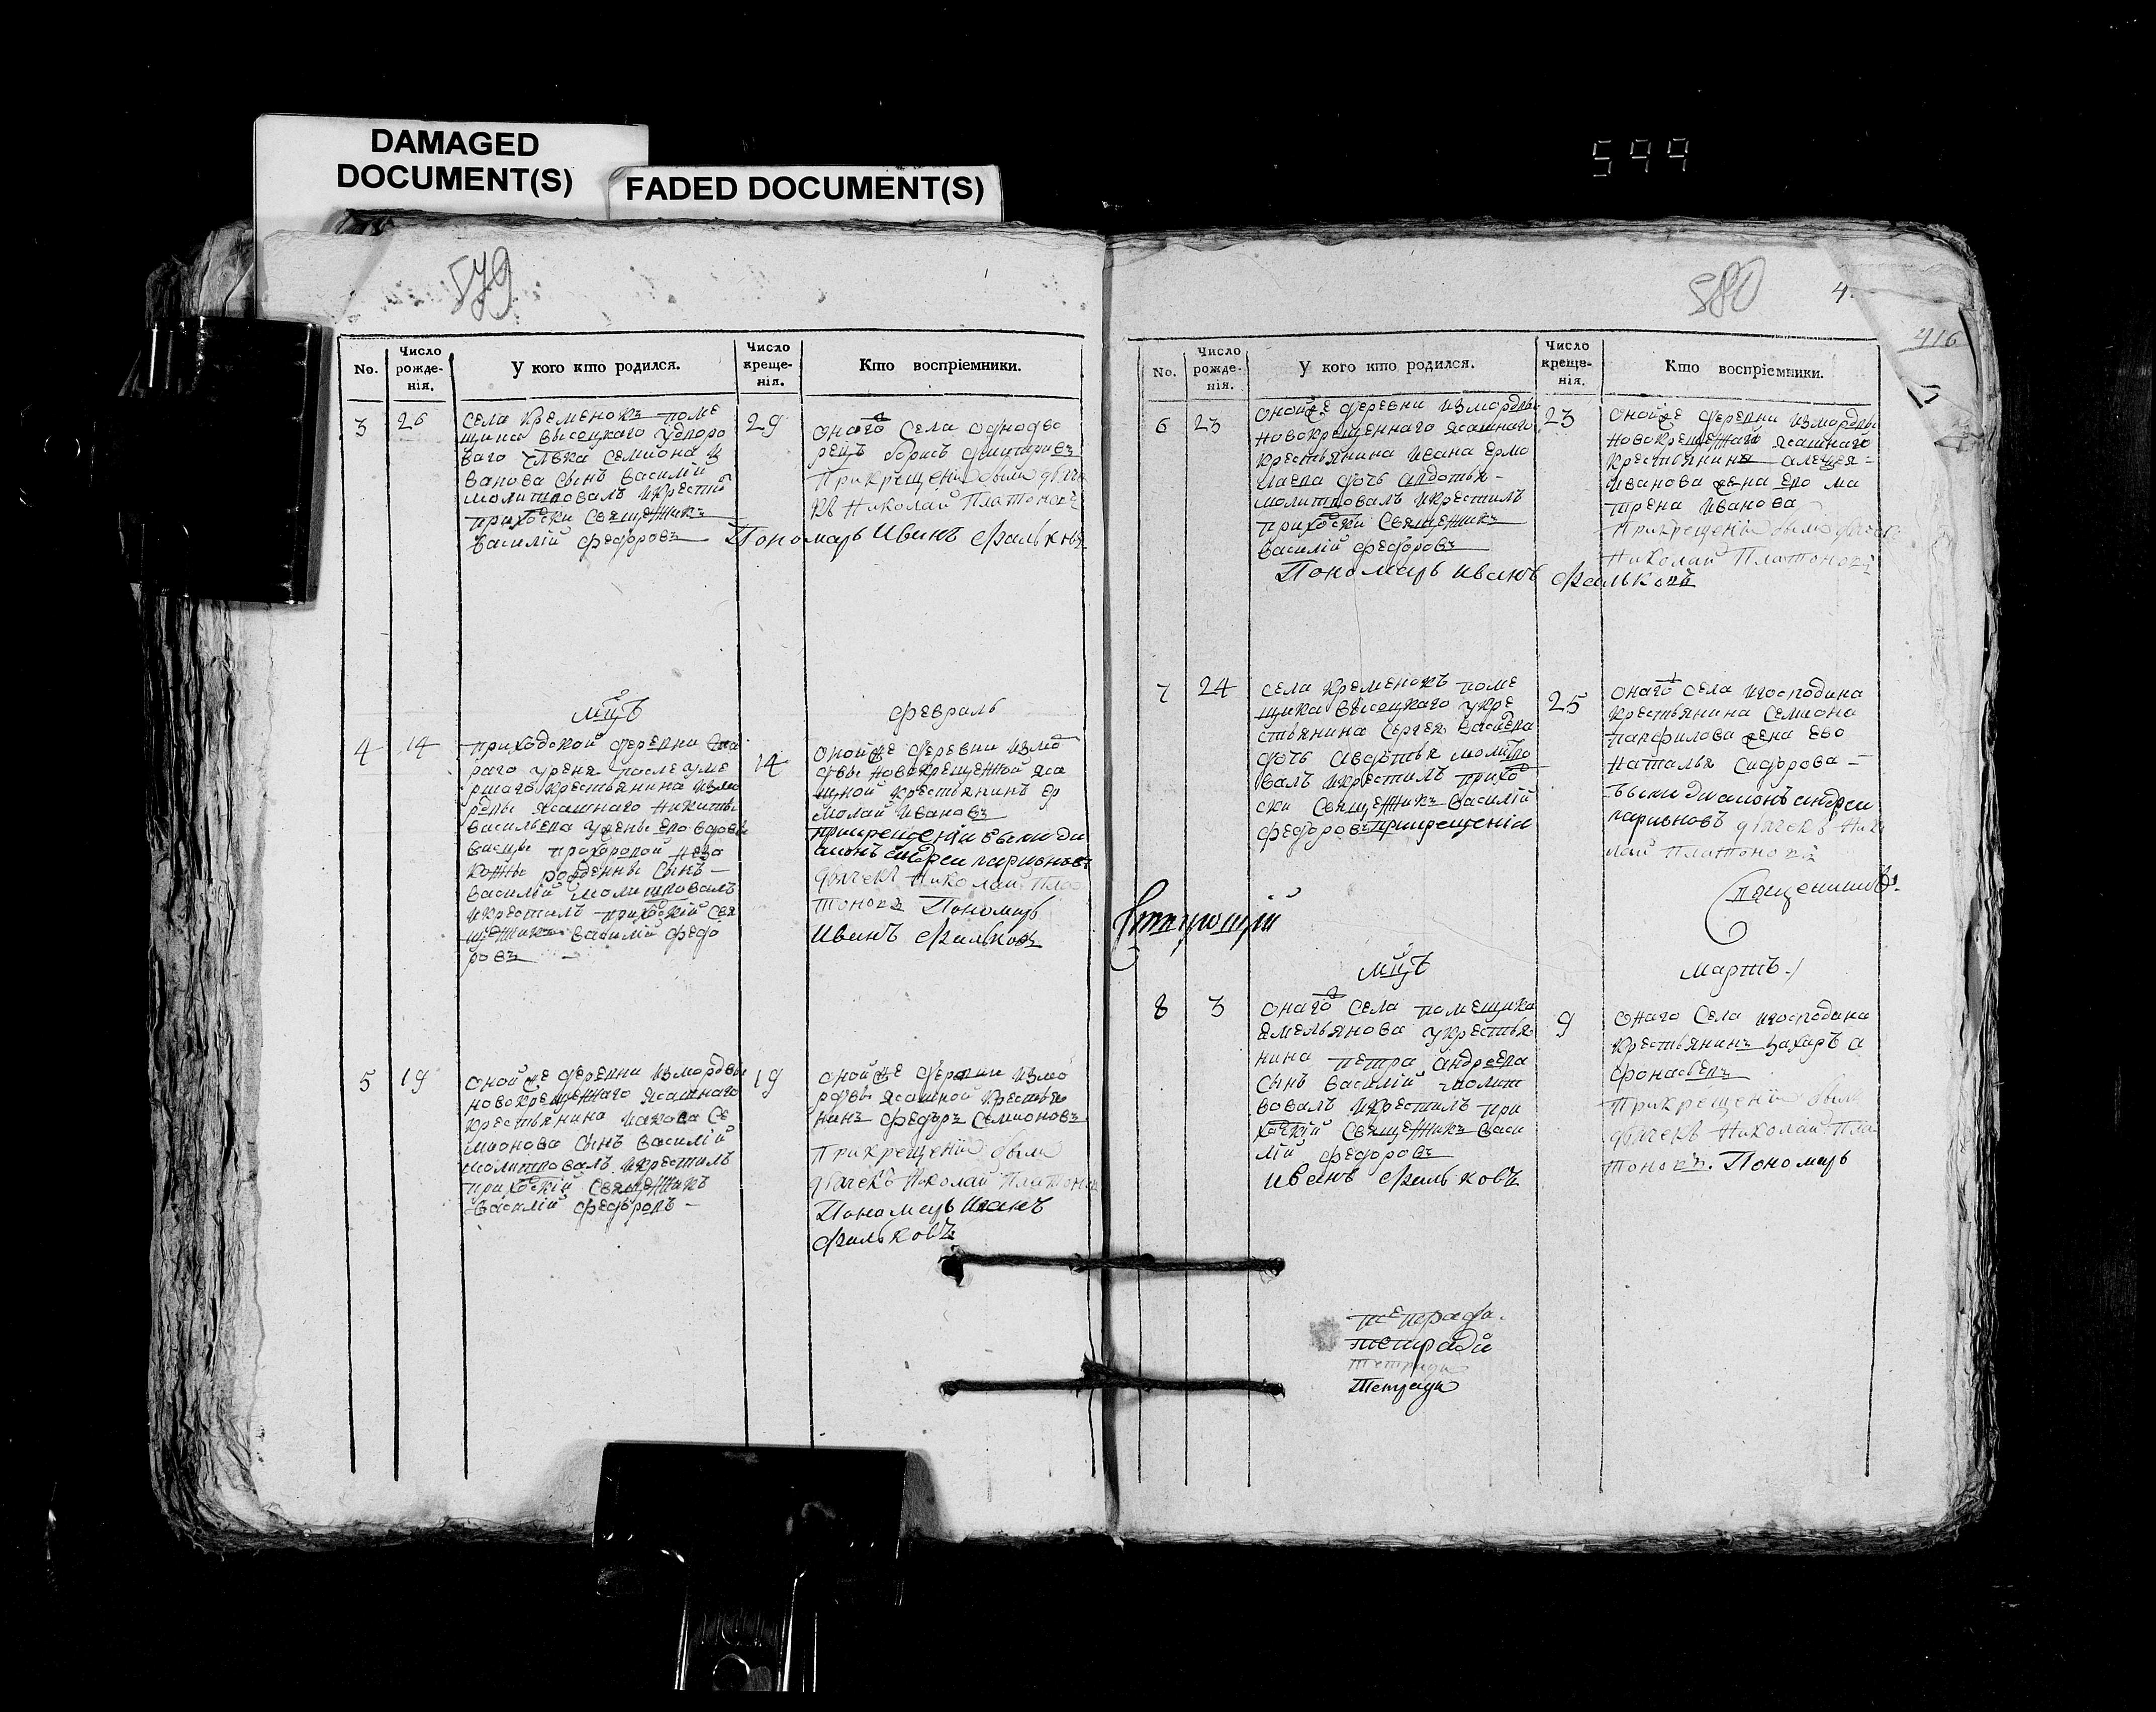 DAMAGED
DOCUMENT(S)
FADED DOCUMENT(S)
599
579
No.
Число рожде- нія.
У кого кто родился.
Число креще- нія.
Кто воспріемники.
3 26
села Кременокъ поме
щика высецкаго удворо
ваго члвка семиона и
ванова сынъ василій
молитвовалъ икрестил
приходски священникъ
василій федоровъ
29
онаго села однодво
рецъ борисъ дмитриевъ
Прикрещеніи были дьяче
къ Николай Платоновъ
Пономарь Иванъ Фальковъ
мцъ
февраль
4 14
приходской деревни ста
раго уреня после уме
ршаго крестьянина измо
рдвы ясашнаго никиты
васильева ужены его вдовы
прохоровой неза
конны рожденны сынъ
василій молитвовалъ
икрестилъ приходскій свя
щенникъ василій федо
ровъ
14
онойже деревни измо
рдвы новокрещенной яса
шной крестьянинъ ер
молай ивановъ
прикрещеніи были ди
аконъ андреи ларионовъ
дьячекъ Николай Пла
тоновъ Пономарь
Иванъ Фальковъ
5 19
онойже деревни измордвы
новокрещеннаго ясашнаго
крестьянина иакова се
мионова сынъ василій
молитвовалъ икрестилъ
приходскій священникъ
василій федоровъ
19
онойже деревни измо
рдвы ясашной крестья
нинъ федоръ семионовъ
Прикрещеніи были
дьячекъ Николай Платонов
Пономарь Иванъ
Фальковъ
580
4.
416
No.
Число рожде- нія.
У кого кто родился.
Число креще- нія.
Кто воспріемники.
6 23
онойже деревни измордвы
новокрещеннаго ясашнаго
крестьянина ивана ермо
лаева дочь авдотья
молитвовалъ икрестилъ
приходски священникъ
василій федоровъ
23
онойже деревни измордвы
новокрещеннаго ясашнаго
крестьянина алексея
иванова жена его ма
трена иванова
Прикрещеніи были дьячекъ
Николай Платоновъ
Пономарь иванъ Фальковъ
7 24
села кременокъ поме
щика высецкаго укре
стьянина сергея васильева
дочь авдотья молитво
валъ икрестилъ прихо
ски священникъ василій
федоровъ прикрещеніи
25
онаго села игосподина
крестьянина семиона
панфилова жена ево
наталья сидорова
были диаконъ андреи
ларионовъ дьячекъ Нико
лай Платоновъ
священникъ
мцъ
мартъ
8 3
онаго села помещика
емельянова укрестья
нина петра андреева
сынъ василій молит
вовалъ икрестилъ при
ходскій священникъ васи
лій федоровъ
Иванъ Фальковъ
9
онаго села игосподина
крестьянинъ захаръ а
фонасьевъ
Прикрещеніи были
дьячекъ Николай Пла
тоновъ. Пономарь
тетрадь.
тетради
тетради
Тетради